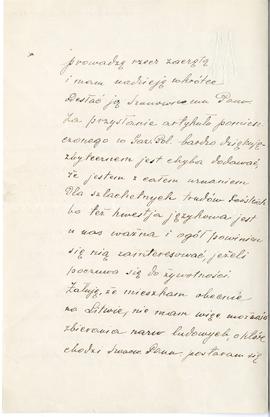 prowadzę rzecz zaczętą
i mam nadzieję wkrótce
Dostać ją Szanownemu Panu
Za przysłanie artykułu pomiesz-
czonego w Gaz. Pol. bardzo dziękuję,
zbytecznem jest chyba dodawać,
że jestem z całem uznaniem
dla szlachetnych trudów Pańskich
bo też kwestja językowa jest
u nas ważna i ogół powinien
się nią zainteresować, jeżeli
poczuwa się do żywotności
Żałuję, że mieszkam obecnie
na Litwie, nie mam więc możności
zbierania nazw ludowych, o które
chodzi Szan. Panu, postaram się